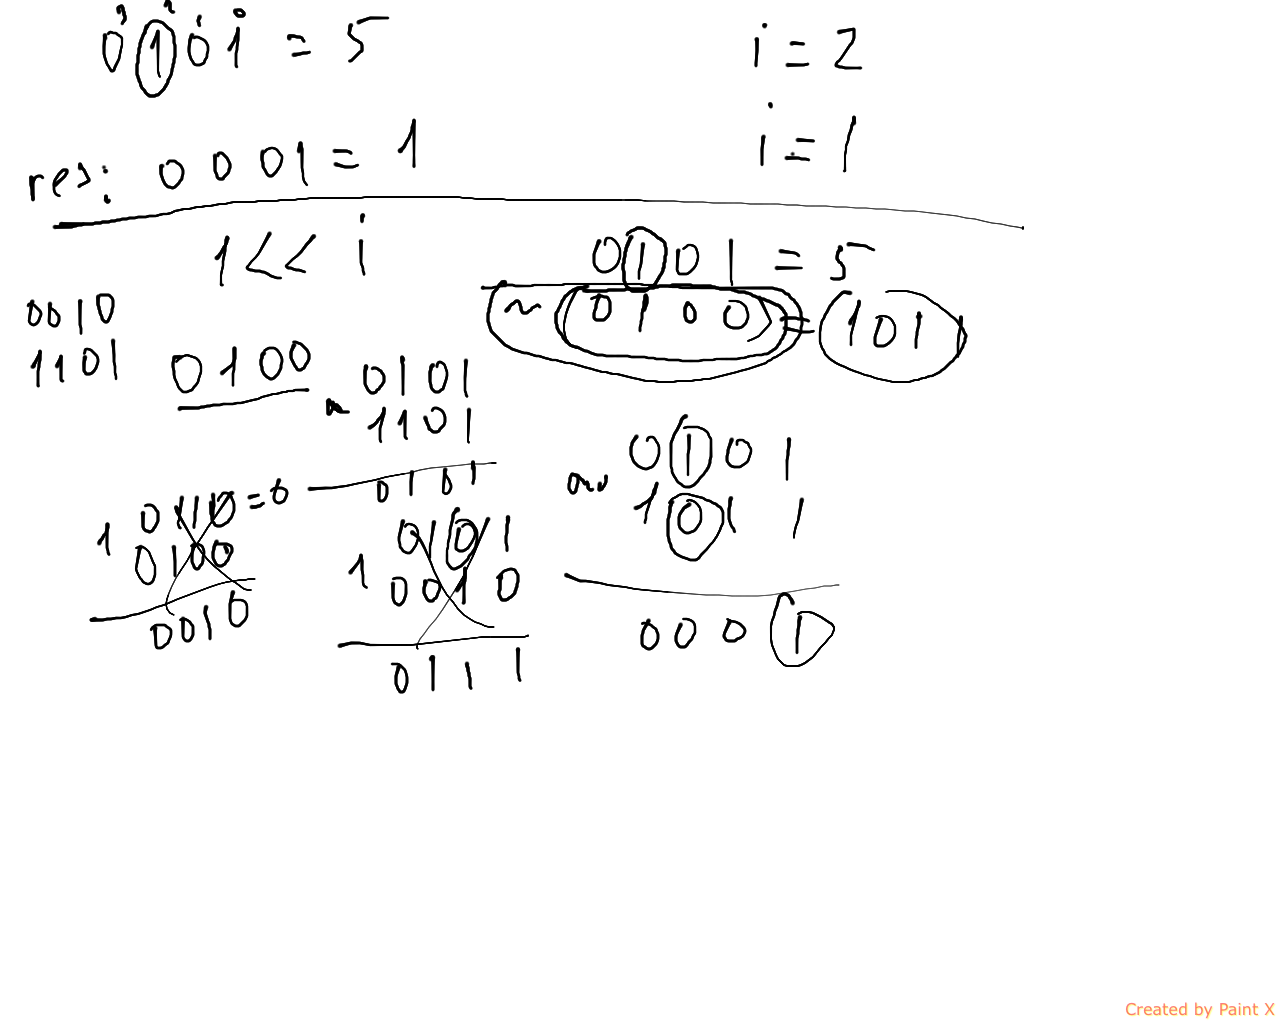 3 2 1 0
0 1 0 1 = 5
i = 2
i = 1
res: 0 0 0 1 = 1
1 << i
0 1 0 1 = 5
~ (0 1 0 0) = 1 0 1 1
0010
1101
0100
0101
1101
0101
0110 = 6
1
0100
0010
0101
1
0010
0111
0 1 0 1
1 0 1 1
0 0 0 1
Created by Paint X